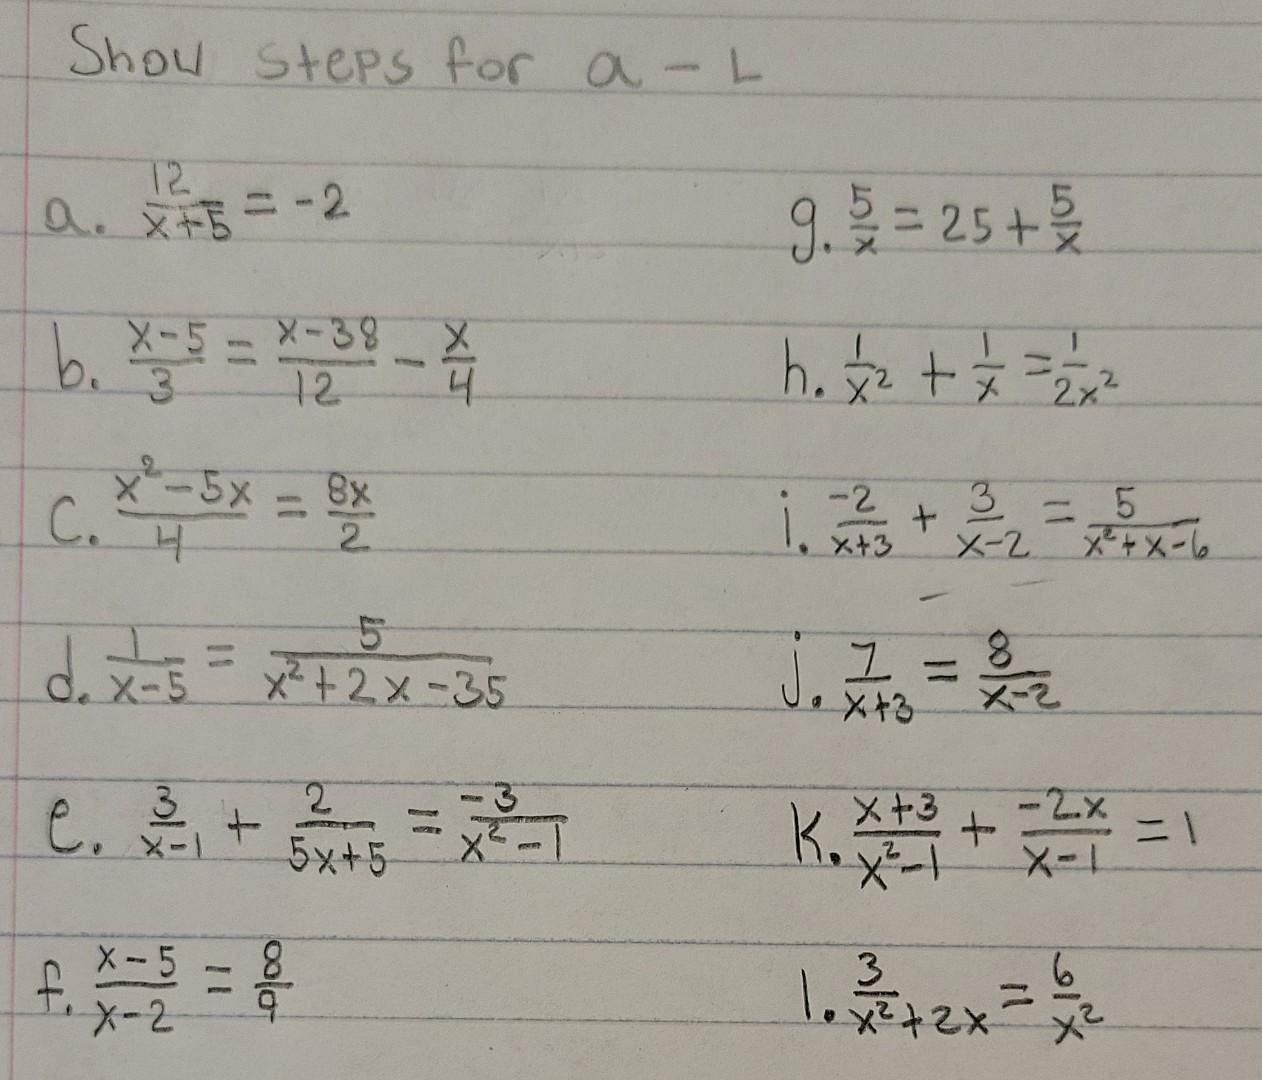 Show steps for a - L
a. 12/(x+5) = -2
b. (x-5)/3 = (x-38)/12 - x/4
c. (x²-5x)/4 = 8x/2
d. 1/(x-5) = 5/(x²+2x-35)
e. 3/(x-1) + 2/(5x+5) = -3/(x²-1)
f. (x-5)/(x-2) = 8/9
g. 5/x = 25 + 5/x
h. 1/x² + 1/x = 1/2x²
i. -2/(x+3) + 3/(x-2) = 5/(x²+x-6)
j. 7/(x+3) = 8/(x-2)
K. (x+3)/(x²-1) + -2x/(x-1) = 1
l. 3/(x²+2x) = 6/x²